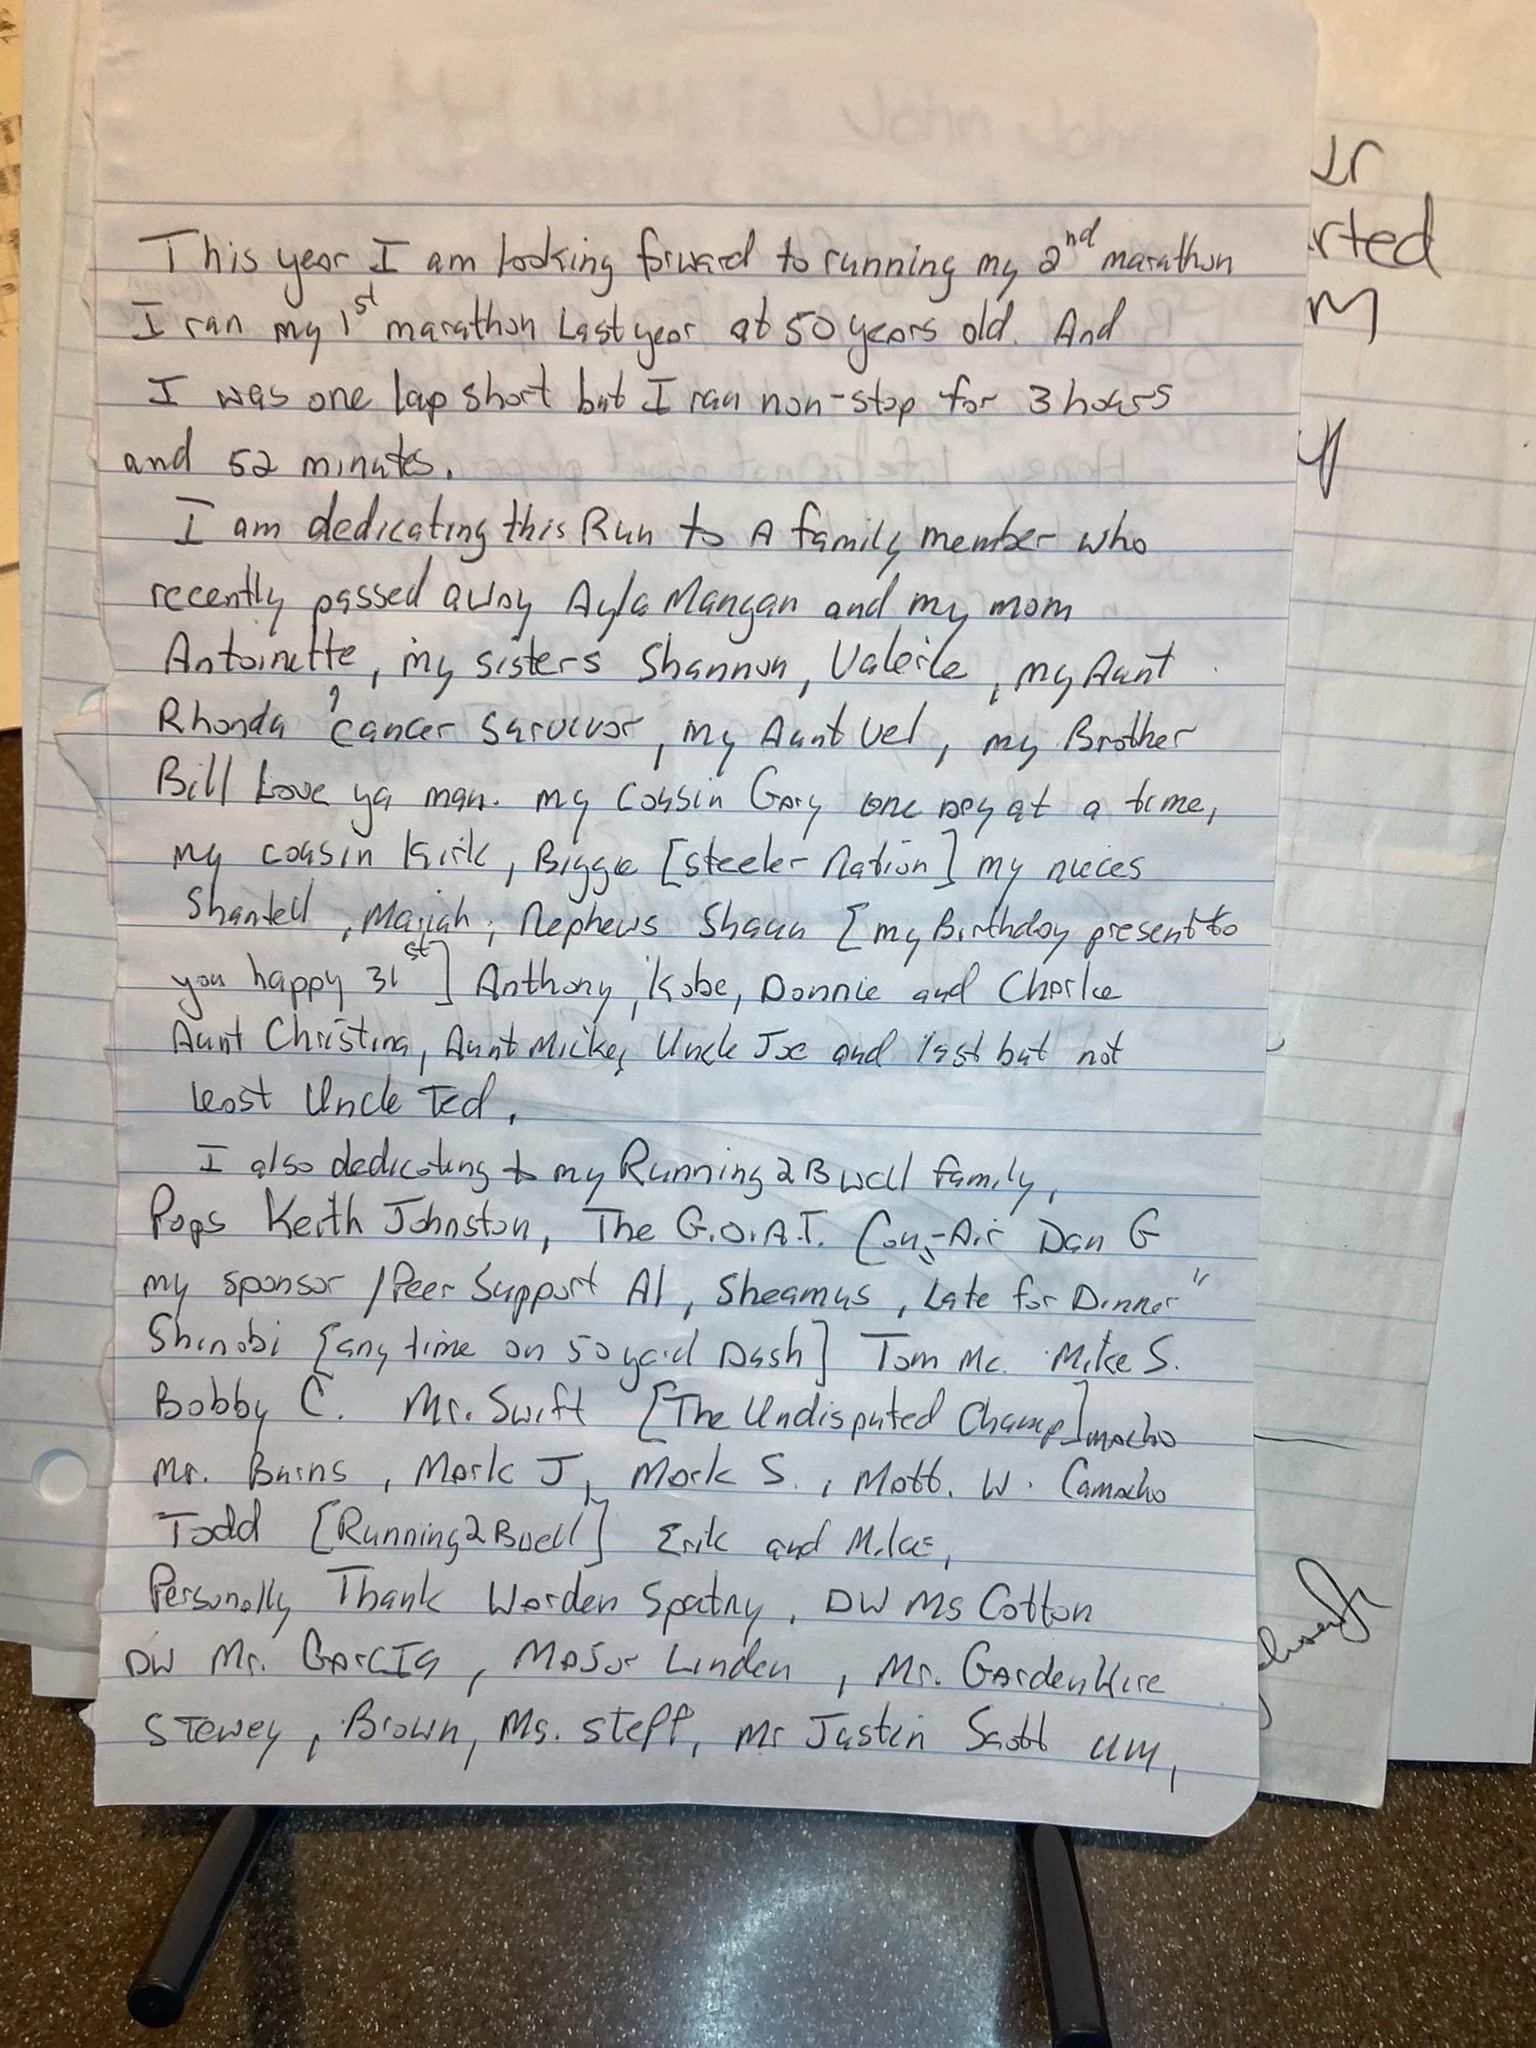 This year I am looking forward to running my 2nd marathon
I ran my 1st marathon Last year at 50 years old. And
I was one lap short but I ran non-stop for 3 hours
and 52 minutes.
I am dedicating this Run to A family member who
recently passed away Ayla Mangan and my mom
Antoinette, my sisters Shannon, Valerie, my Aunt
Rhonda cancer survivor, my Aunt Vel, my Brother
Bill Love ya man. my cousin Gary one Day at a time,
my cousin Kirk, Biggie [steeler Nation] my nieces
Shantell, Mariah, Nephews Shaun [my Birthday present to
you happy 31st] Anthony, Kobe, Donnie and Charlie
Aunt Christina, Aunt Mickey, Uncle Joe and last but not
least Uncle Ted,
I also dedicating to my Running 2 B well family,
Pops Keith Johnston, The G.O.A.T. Con-Air Dan G
my sponsor / Peer Support Al, Sheamus, Late for Dinner"
Shinobi [any time on 50 yard Dash] Tom Mc. Mike S.
Bobby C. Mr. Swift [The Undisputed Champ] macho
Mr. Burns, Mark J, Mark S., Matt. W. Camacho
Todd [Running 2 B well] Erik and Mike,
Personally Thank Warden Spatny, DW Ms Cotton
DW Mr. GARCIA, Major Linden, Mr. GardenHire
Stewey, Brown, Ms. Steff, Mr Justin Scott UM,
Jr
rted
M